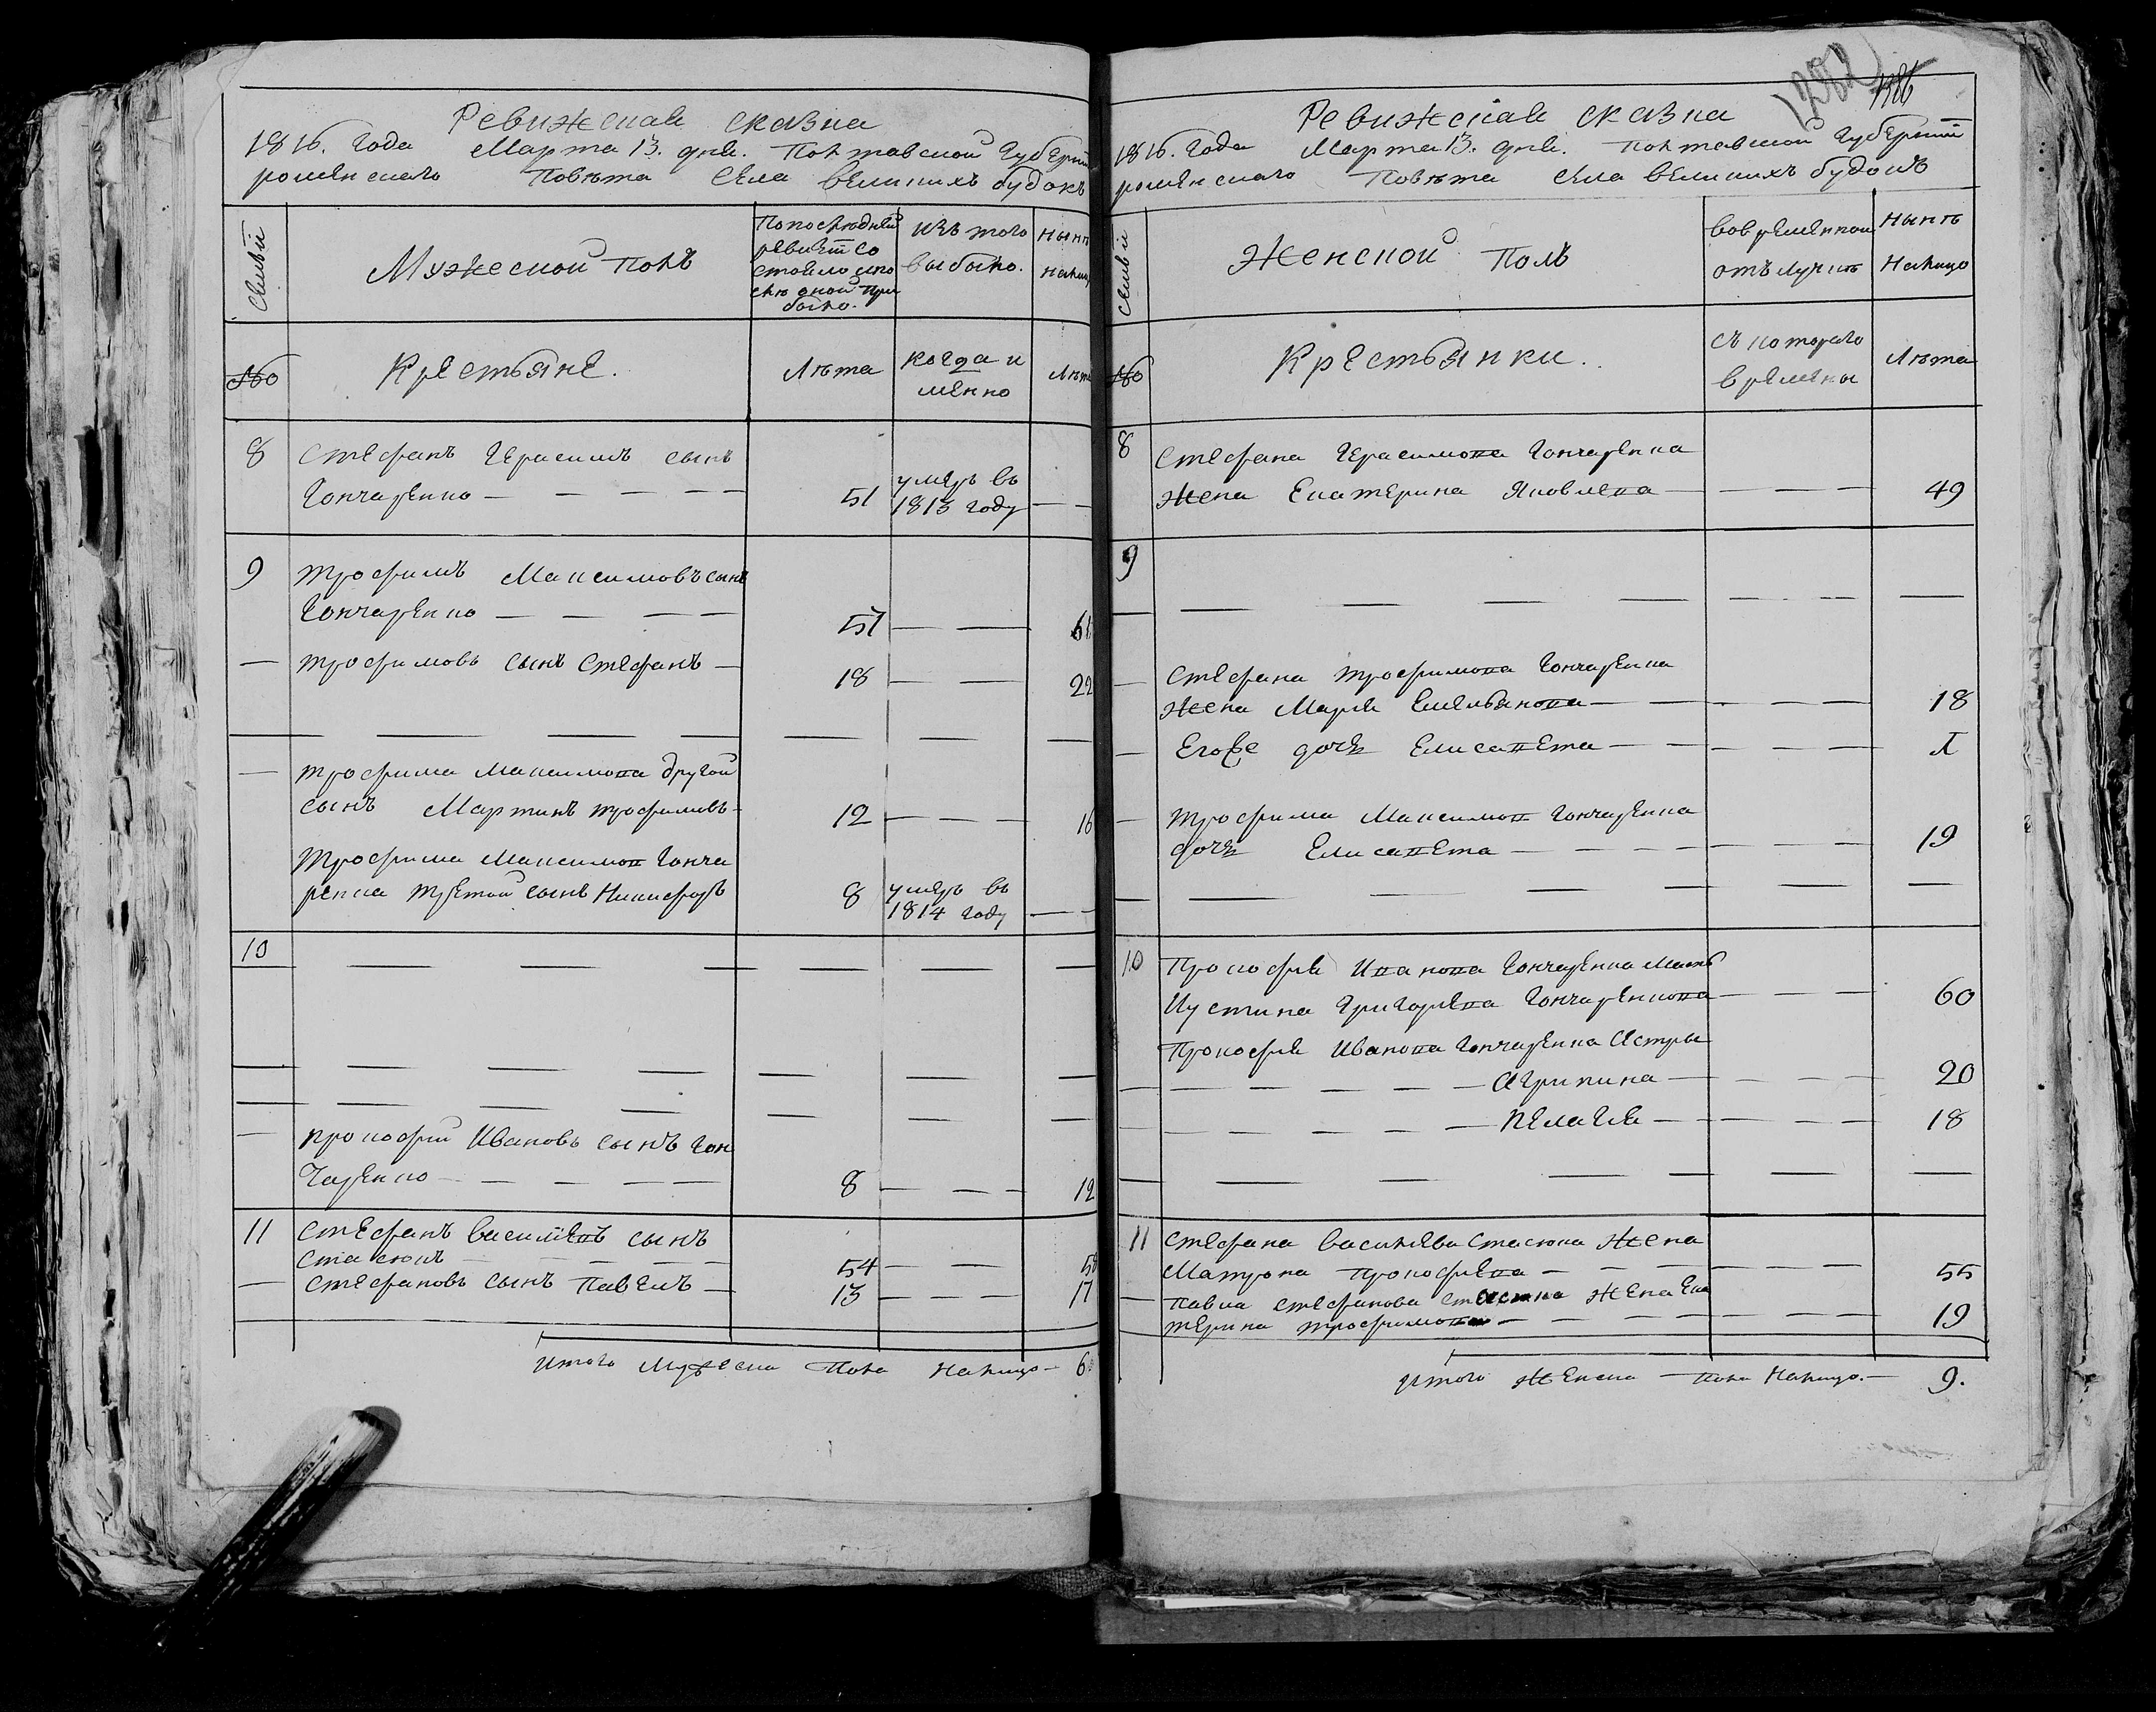 Ревижская сказка
1816. Года Марта 13. дня. Полтавской Губерніи
роменскаго Повѣта Села великихъ будокъ
Семьи
Мужеской полъ
Попослѣдней
ревизіи со
стояло ипо
слѣ оной при
было.
изъ того
выбыло.
Нынѣ
налицо
№
Крестьяне.
Лѣта
когда и
менно
Лѣта
8 Стефанъ Герасимъ сынъ
Гончаренко — 51 умеръ въ
1813 году —
9 трофимъ Максимовъ сынъ
Гончаренко — 57 — 61
— трофимовъ сынъ Стефанъ — 18 — 22
— трофима Максимова другой
сынъ Мартинъ трофимовъ — 12 — 16
трофима Максимов Гонча
ренка третій сынъ Никифоръ 8 умеръ въ
1814 году —
10
— прокофій Ивановъ сынъ Гон
чаренко — 8 — 12
11 Стефанъ василіевъ сынъ
Стасюкъ — 54 — 58
— Стефановъ сынъ Павелъ — 13 — 17
Итого Мужеска Пола Налицо — 6.
1282
Ревижская сказка
1816. Года Марта 13. дня. Полтавской Губерніи
роменскаго Повѣта Села великихъ будокъ
Семьи
Женской Полъ
вовременной
отълучкѣ
Нынѣ
Налицо
№
Крестьянки.
съ котораго
времены
Лѣта
8 Стефана Герасимова Гончаренка
жена Екатерина Яковлева — 49
9
— Стефана трофимова Гончаренка
жена Марія Емельянова — 18
— Егоже дочь Елисавета — 1
— трофима Максимов Гончаренка
дочь Елисавета — 19
10 Прокофія Иванова Гончаренка Мать
Иустина Григоріева Гончаренкова — 60
Прокофія Иванова Гончаренка Сестры
— Агрипина — 20
— Пелагія — 18
11 Стефана Василіева Стасюка Жена
Матрона Прокофіева — 55
— Павла Стефанова Стасюка Жена Ека
терина трофимова — 19
Итого Женска — Пола Налицо. — 9.